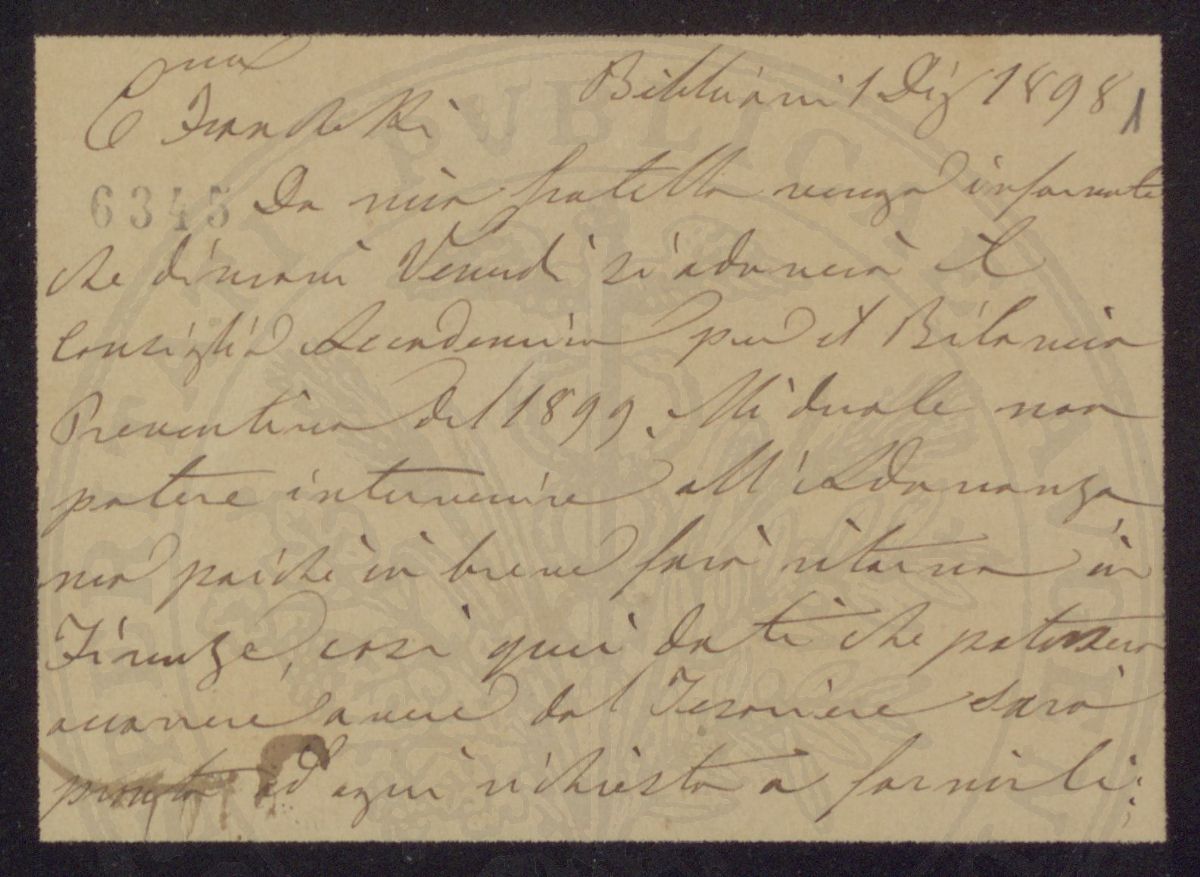 Bibbiani 1 Diz 1898 1
C Franchetti
6345 Da mio fratello vengo informato
che dimani Venerdì si adunerà il
Consiglio Accademico per il Bilancio
Preventivo del 1899. Mi duole non
potere intervenire all'Adunanza
ma poiché in breve farò ritorno in
Firenze, così quei dati che potessero
occorrere avere dal Tesoriere sarò
pronto ad ogni richiesta a fornirli:
PUBLICAE